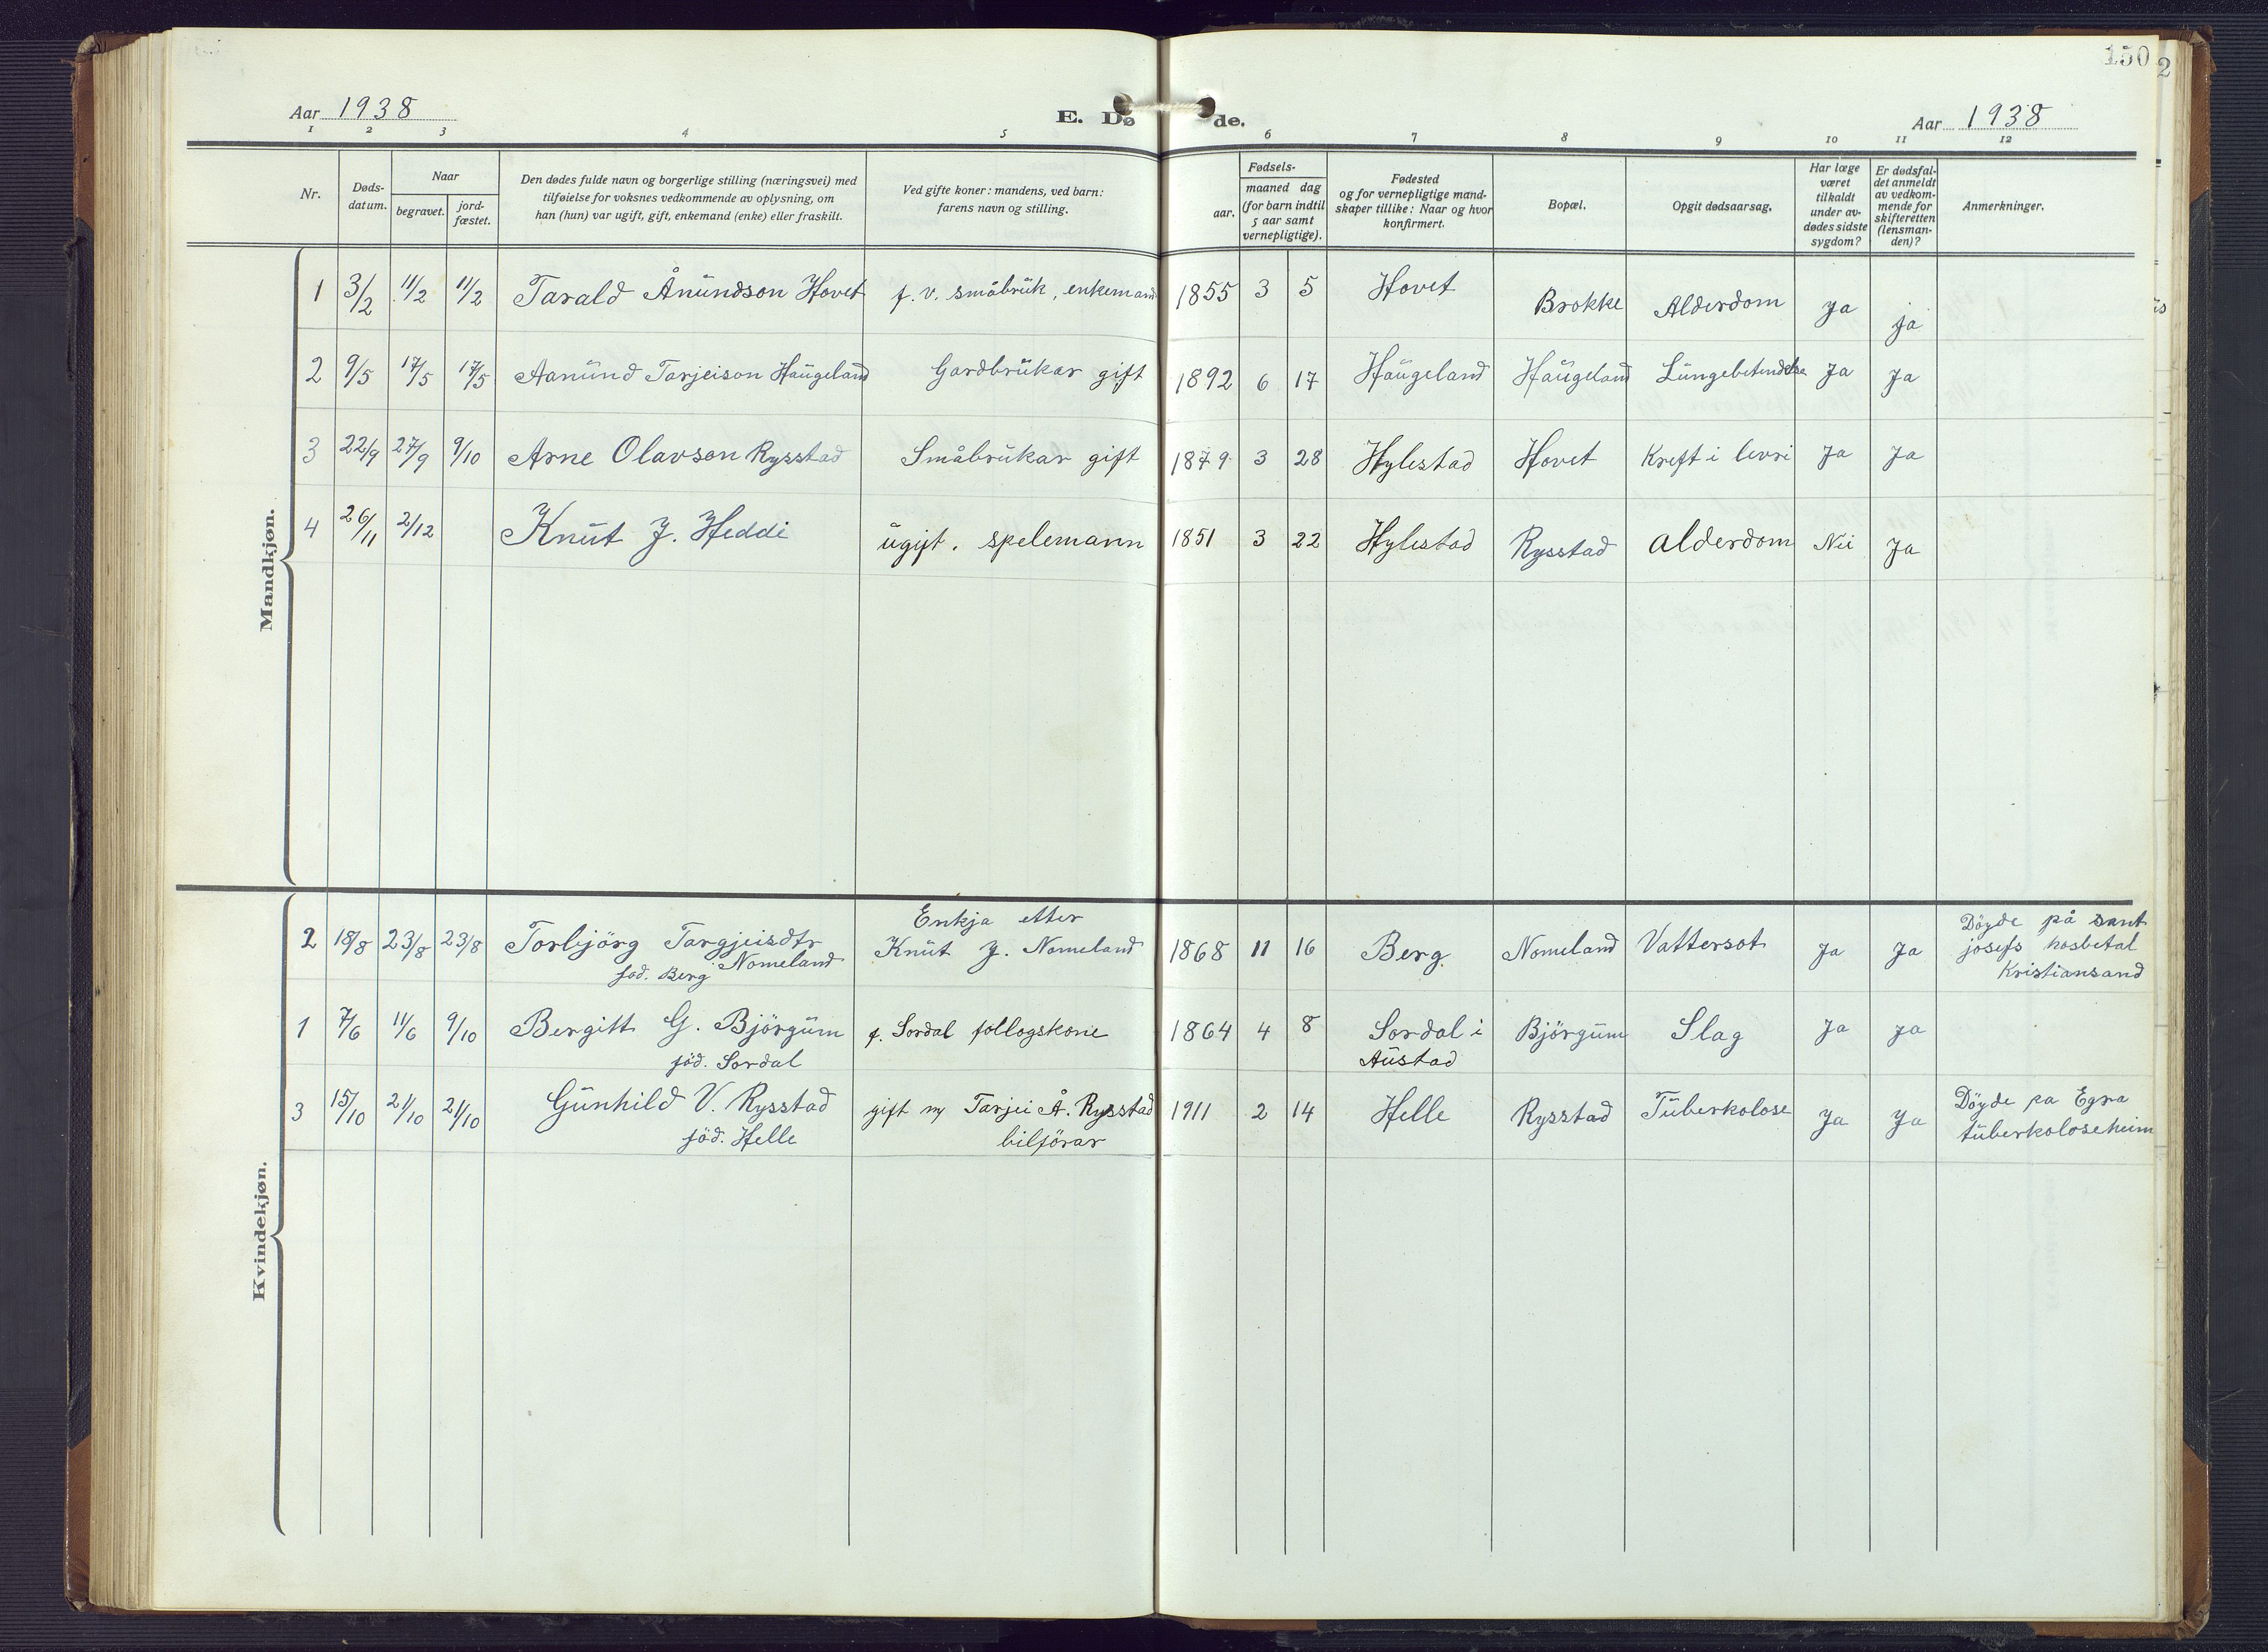 150
2
Aar 1938
E. Dø de.
Aar 1938
1 2 3 4 5 6 7 8 9 10 11 12
Nr.
Døds-
datum.
Naar
begravet.
jord-
fæstet.
Den dødes fulde navn og borgerlige stilling (næringsvei) med
tilføielse for voksnes vedkommende av oplysning, om
han (hun) var ugift, gift, enkemand (enke) eller fraskilt.
Ved gifte koner: mandens, ved barn:
farens navn og stilling.
Fødsels-
aar.
maaned dag
(for barn indtil
5 aar samt
vernepligtige).
Fødested
og for vernepligtige mand-
skaper tillike: Naar og hvor
konfirmert.
Bopæl.
Opgit dødsaarsag.
Har læge
været
tilkaldt
under av-
dødes sidste
sygdom?
Er dødsfal-
det anmeldt
av vedkom-
mende for
skifteretten
(lensman-
den)?
Anmerkninger.
Mandkjøn.
1 3/2 11/2 11/2 Tarald Ånundson Hovet f. v. småbruk, enkemann 1855 3 5 Hovet Brokke Alderdom Ja ja
2 9/5 17/5 17/5 Aanund Tarjeison Haugeland Gardbrukar gift 1892 6 17 Haugeland Haugeland Lungebetendelse Ja Ja
3 22/9 27/9 9/10 Arne Olavson Rysstad Småbrukar gift 1879 3 28 Hylestad Hovet Kreft i levri Ja Ja
4 26/11 2/12 Knut J. Heddi ugift. spelemann 1851 3 22 Hylestad Rysstad Alderdom Nei Ja
Kvindekjøn.
2 18/8 23/8 23/8 Torbjörg Targjeisdtr Nomeland
föd. Berg
Enkja etter
Knut J. Nomeland
1868 11 16 Berg Nomeland Vattersot Ja Ja
Döyde på sant
josefs hosbetal
Kristiansand
1 7/6 11/6 9/10 Bergitt G. Björgum
föd. Sordal
f. Sordal follogskone
1864 4 8 Sordal i
Austad
Björgum Slag Ja Ja
3 15/10 21/10 21/10 Gunhild V. Rysstad
föd. Helle
gift m/ Tarjei Å. Rysstad
bilförar
1911 2 14 Helle Rysstad Tuberkolose Ja Ja
Döyde pa Egra
tuberkoloseheim